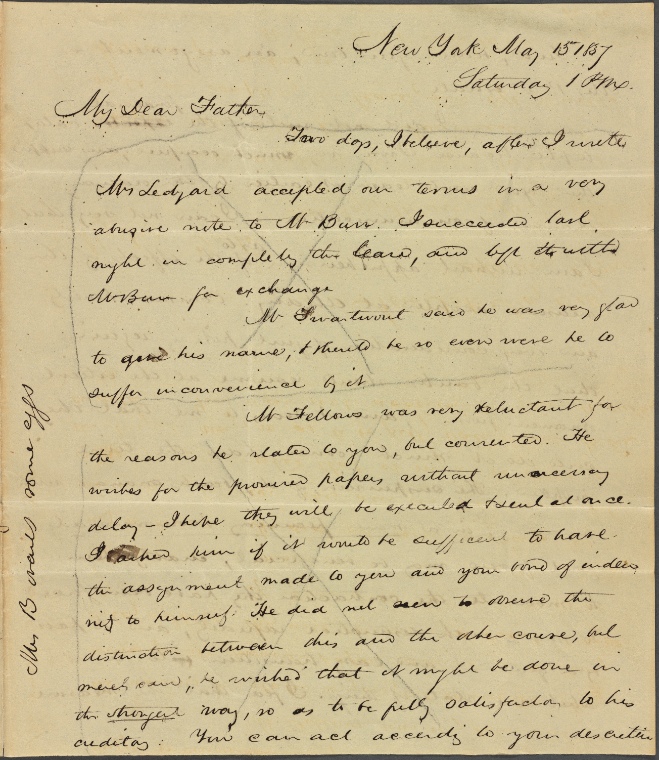 New York May 15 1857
Saturday 1 P.M.
My Dear Father
Two days, I believe, after I wrote
Mrs Ledyard accepted our terms in a very
abusive note to Mr Burr. I succeeded last
night in completing the lease, and left it with
Mr Burr for exchange
Mr Swartwout said he was very glad
to give his name, & should be so even were he to
suffer inconvenience by it
Mr Fellows was very reluctant for
the reasons he stated to you, but consented. He
wishes for the promised papers without unnecessary
delay – I hope they will be executed & sent at once.
I asked him if it would be sufficient to have
the assignment made to you and your bond of indem
nity to himself. He did not seem to observe the
distinction between this and the other course, but
merely said, he wished that it might be done in
the strongest way, so as to be fully satisfactory to his
creditors. You can act according to your discretion
Mrs B wants some eggs